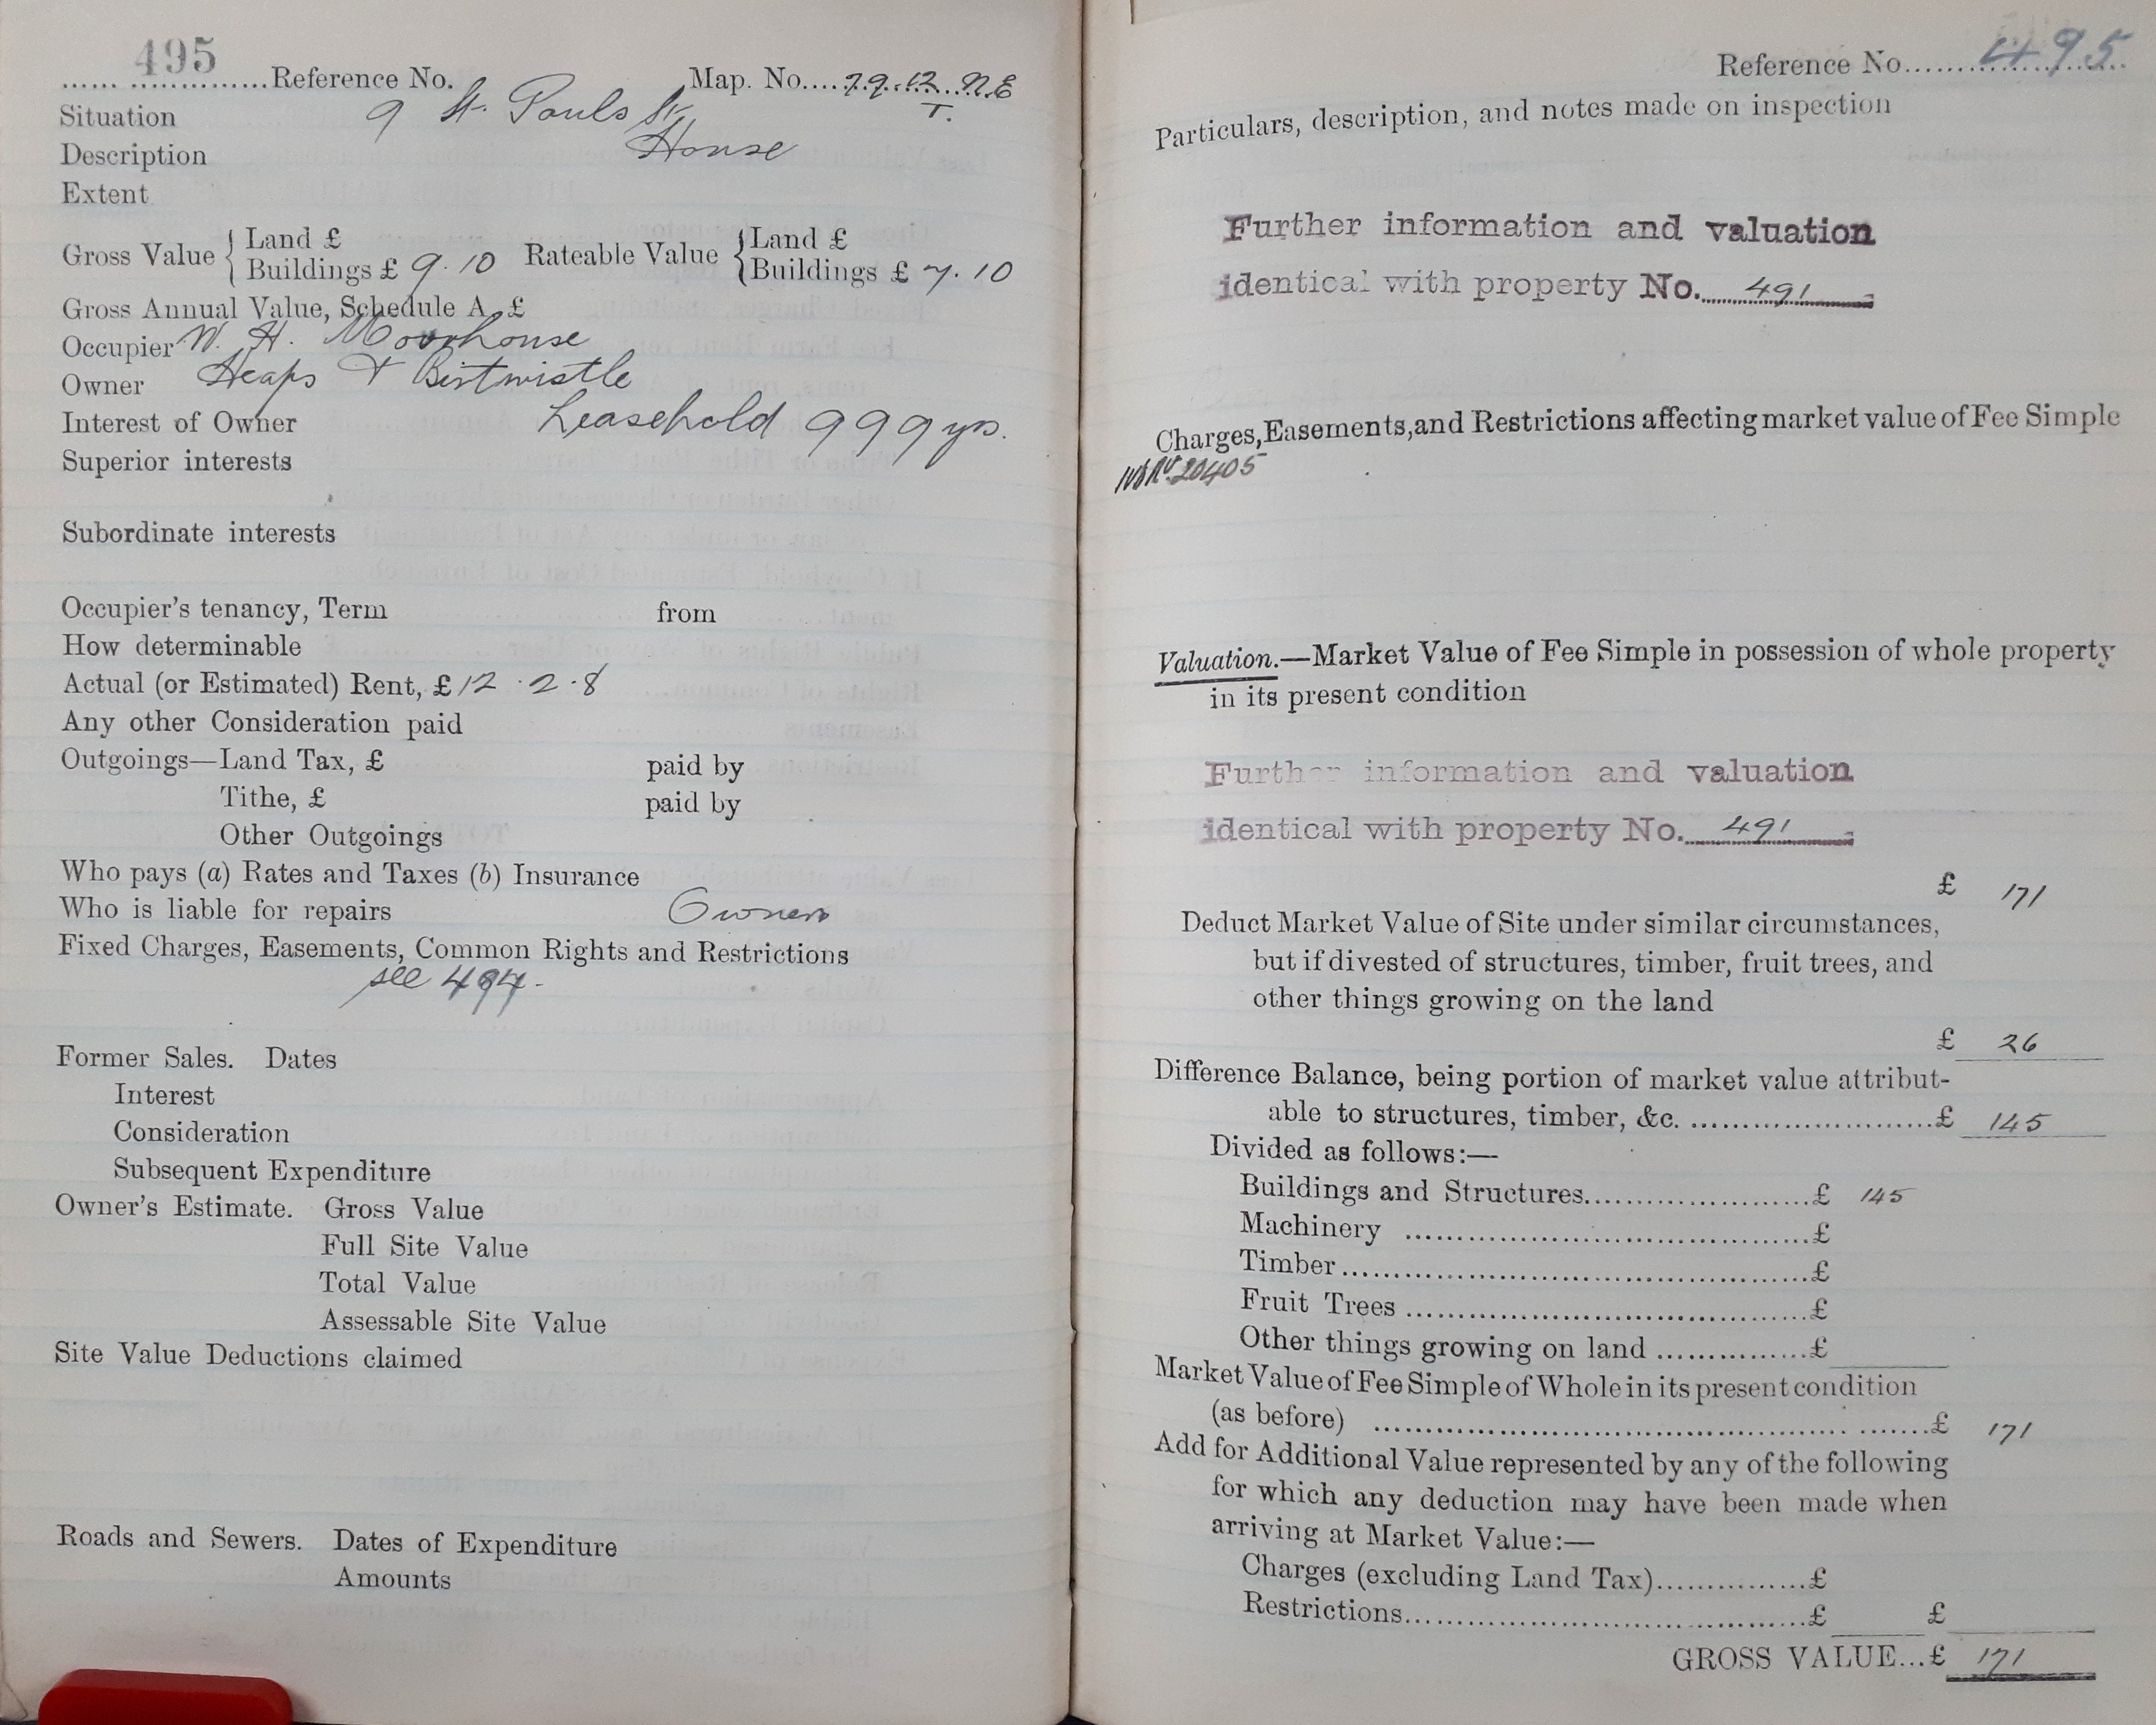 495
...... ..............Reference No. Map. No....79.12.N.E
T.
Situation 9 St. Pauls St.
Description House
Extent
Gross Value { Land £ Rateable Value { Land £
Buildings £ 9.10 Buildings £ 7.10
Gross Annual Value, Schedule A, £
Occupier W. H. Moorhouse
Owner Heaps & Birtwistle
Interest of Owner Leasehold 999 yrs.
Superior interests
Subordinate interests
Occupier's tenancy, Term from
How determinable
Actual (or Estimated) Rent, £ 12.2.8
Any other Consideration paid
Outgoings—Land Tax, £ paid by
Tithe, £ paid by
Other Outgoings
Who pays (a) Rates and Taxes (b) Insurance
Who is liable for repairs Owners
Fixed Charges, Easements, Common Rights and Restrictions
see 494-
Former Sales. Dates
Interest
Consideration
Subsequent Expenditure
Owner's Estimate. Gross Value
Full Site Value
Total Value
Assessable Site Value
Site Value Deductions claimed
Roads and Sewers. Dates of Expenditure
Amounts
Reference No. 495
Particulars, description, and notes made on inspection
Further information and valuation
identical with property No. 491
Charges, Easements, and Restrictions affecting market value of Fee Simple
20405
Valuation.—Market Value of Fee Simple in possession of whole property
in its present condition
Further information and valuation
identical with property No. 491
£ 171
Deduct Market Value of Site under similar circumstances,
but if divested of structures, timber, fruit trees, and
other things growing on the land
£ 26
Difference Balance, being portion of market value attribut-
able to structures, timber, &c. ........................£ 145
Divided as follows:—
Buildings and Structures......................£ 145
Machinery ......................................£
Timber.............................................£
Fruit Trees .......................................£
Other things growing on land ...............£
Market Value of Fee Simple of Whole in its present condition
(as before) ............................................ .......£ 171
Add for Additional Value represented by any of the following
for which any deduction may have been made when
arriving at Market Value:—
Charges (excluding Land Tax)...............£
Restrictions.......................................£ £
GROSS VALUE...£ 171